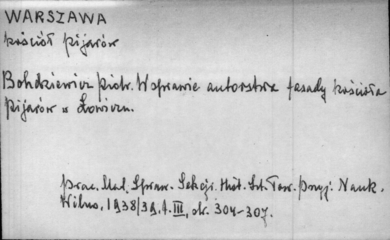 WARSZAWA
kościół pijarów
Bohdziewicz Piotr. W sprawie autorstwa fasady kościoła
Pijarów w Łowiczu.
Prac. Mad. Spraw. Sekcji. Hist. Szt. Tow. Przyj. Nauk.
Wilno, 1938/39, t. III, str. 304-307.